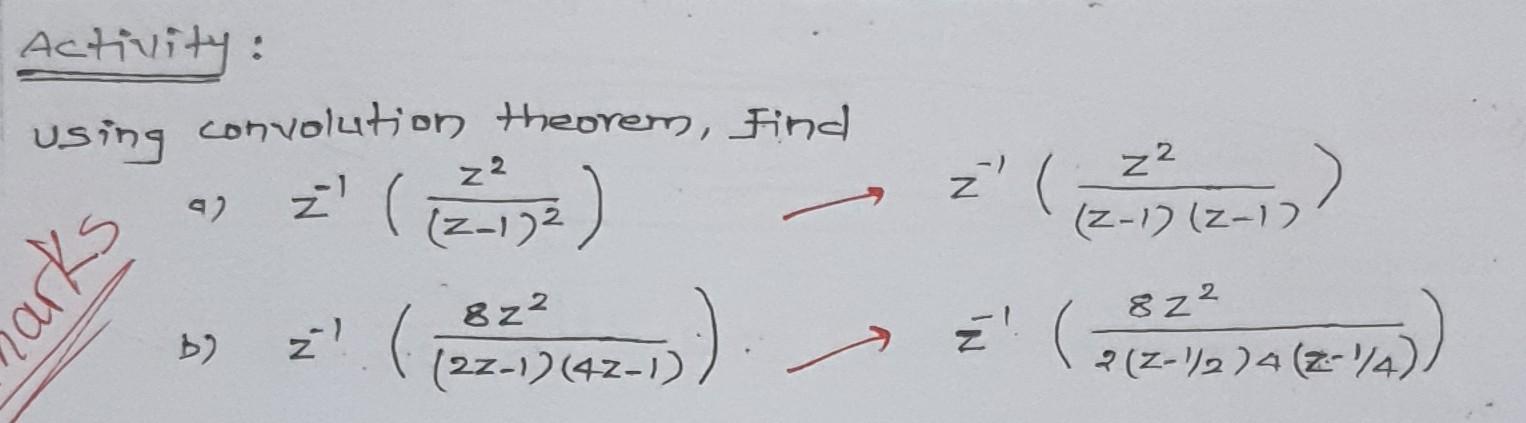 Activity :
Using convolution theorem, Find
a) z⁻¹ ( z² / (z-1)² ) → z⁻¹ ( z² / (z-1)(z-1) )
b) z⁻¹ ( 8z² / (2z-1)(4z-1) ). → z⁻¹ ( 8z² / 2(z-1/2)4(z-1/4) )